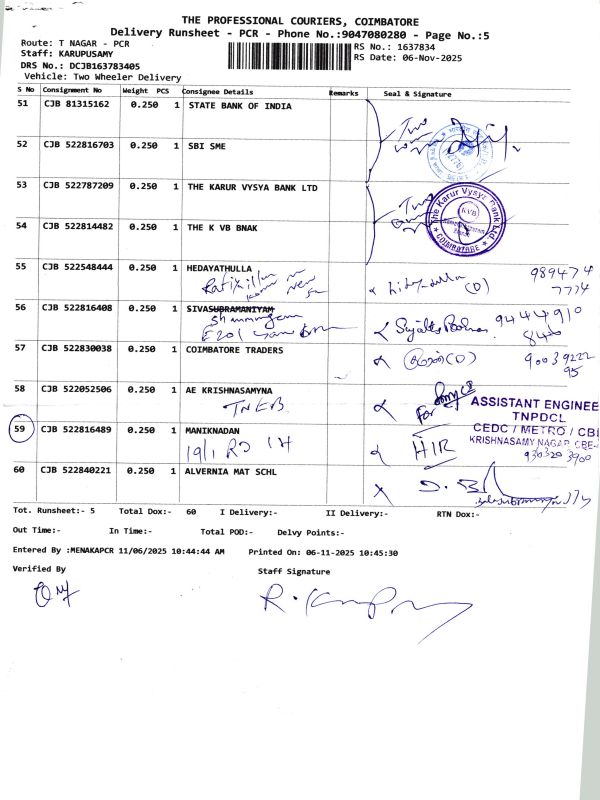 THE PROFESSIONAL COURIERS, COIMBATORE
Delivery Runsheet - PCR - Phone No.:9047080280 - Page No.:5
Route: T NAGAR - PCR
RS No.: 1637834
Staff: KARUPUSAMY
RS Date: 06-Nov-2025
DRS No.: DCJB163783405
Vehicle: Two Wheeler Delivery
S No Consignment No Weight PCS Consignee Details Remarks Seal & Signature
51 CJB 81315162 0.250 1 STATE BANK OF INDIA
52 CJB 522816703 0.250 1 SBI SME
53 CJB 522787209 0.250 1 THE KARUR VYSYA BANK LTD
The Karur Vysya Bank Ltd.
KVB
COIMBATORE
54 CJB 522814482 0.250 1 THE K VB BNAK
55 CJB 522548444 0.250 1 HEDAYATHULLA
(D)
989474
7774
56 CJB 522816408 0.250 1 SIVASUBRAMANIYAM
E201
9444910
840
57 CJB 522830038 0.250 1 COIMBATORE TRADERS
(D)
90039222
95
58 CJB 522052506 0.250 1 AE KRISHNASAMYNA
TNEB
For
ASSISTANT ENGINEE
TNPDCL
CEDC / METRO / CB
KRISHNASAMY NAGAR, CBE-
59 CJB 522816489 0.250 1 MANIKNADAN
19/1 RD 1H
HIR
930320 3900
60 CJB 522840221 0.250 1 ALVERNIA MAT SCHL
Tot. Runsheet:- 5 Total Dox:- 60 I Delivery:- II Delivery:- RTN Dox:-
Out Time:- In Time:- Total POD:- Delvy Points:-
Entered By :MENAKAPCR 11/06/2025 10:44:44 AM Printed On: 06-11-2025 10:45:30
Verified By Staff Signature